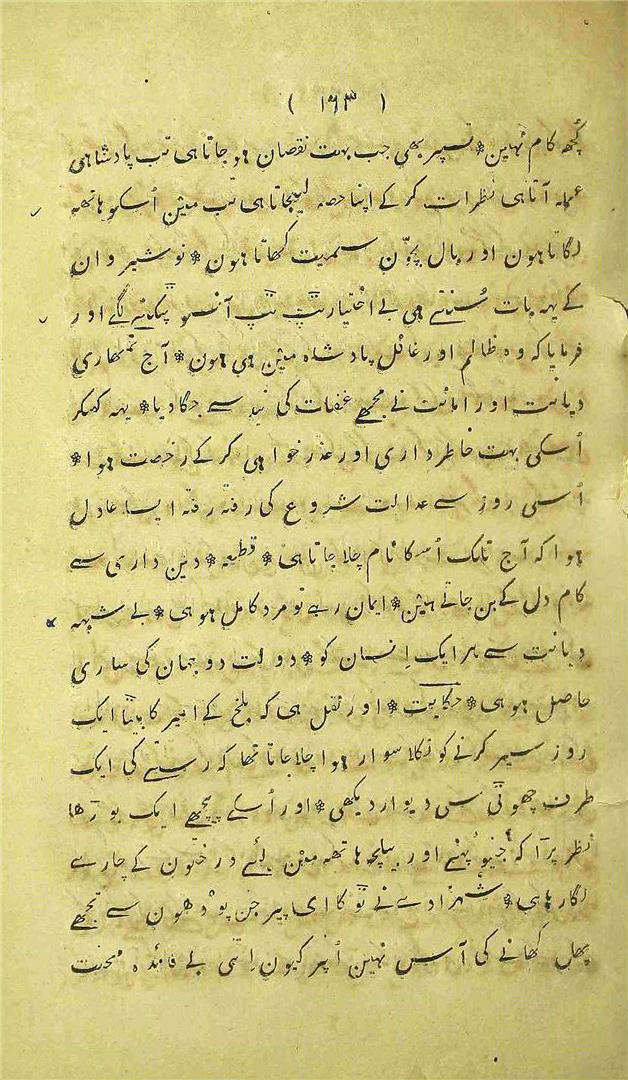 ( ۱۶۳ )
کُچھ کام نہین * تسپر بھی جب بہت نقصان ہو جاتا ہی تب پادشاہی
عملہ آتا ہی نظرات کر کے اپنا حصہ لیجاتا ہی تب مین اُسکو ہاتھہ
لگاتا ہون اور بال بچّون سمیت کھاتا ہون * نوشیروان
کے یہہ بات سُنتے ہی بے اختیار ٹپ ٹپ آنسو ٹپکنے لگے اور
فرمایا کہ وہ ظالم اور غافل پادشاہ مین ہی ہون * آج تمھاری
دیانت اور امانت نے مجھے غفلت کی نیند سے جگا دیا * یہہ کہکر
اُسکی بہت خاطر داری اور عذر خواہی کر کے رخصت ہوا *
اُسی روز سے عدالت شروع کی رفتہ رفتہ ایسا عادل
ہوا کہ آج تلک اُسکا نام چلا جاتا ہی * قطعہ * دین داری سے
کام دل کے بن جاتے ہین * ایمان رہے تو مرد کامل ہووی * بے شبہہ
دیانت سے ہر ایک اِنسان کو * دولت دو جہان کی ساری
حاصل ہووی * حکایت * اور نقل ہی کہ بلخ کے امیر کا بیٹا ایک
روز سیر کرنے کو نکلا سوار ہوا چلا جاتا تھا کہ رستے کی ایک
طرف چھوٹی سی دیوار دیکھی * اور اُسکے پیچھے ایک بوڑھا
نظر پڑا کہ جنیو پہنے اور بیلچہ ہاتھہ مین لئے درختون کے چارے
لگا رہا ہی * شہزادے نے ٹوکا ای پیر جن پودھون سے تجھے
پھل کھانے کی آس نہین اُنپر کیون اِتنی بے فائدہ محنت